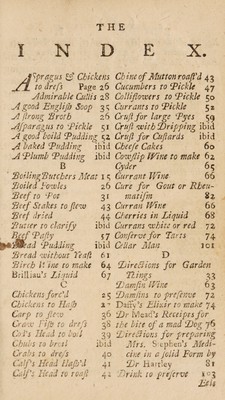 THE
INDEX.
ASpragus & Chickens
to dress Page 26
Admirable Cullis 28
A good English Soop 35
A strong Broth 26
Asparagus to Pickle 51
A good boild Pudding 52
A baked Pudding ibid
A Plumb Pudding ibid
B
Boiling Butchers Meat 15
Boiled Fowles 26
Beef to Pot 31
Beef Stakes to stew 43
Beef dried 44
Butter to clarify ibid
Beef Pasty 57
Bread Pudding ibid
Bread without Yeast 61
Birch Wine to make 64
Brilliau's Liquid 67
C
Chickens forc'd 25
Chickens to Hash
Carp to stew 36
Craw Fish to dress 38
Cod's Head to boil 39
Chubs to broil ibid
Crabs to dress 40
Calf's Head Hash'd 41
Calf's Head to roast 42
Chine of Mutton roast'd 43
Cucumbers to Pickle 47
Colliflowers to Pickle 50
Currants to Pickle 52
Crust for large Pyes 59
Crust with Dripping ibid
Crust for Custards ibid
Cheese Cakes 60
Cowslip Wine to make 62
Cyder 65
Currant Wine 66
Cure for Gout or Rheumatism 82
Curran Wine 66
Cherries in Liquid 68
Currans white or red 72
Conserve for Tarts 74
Cellar Man 101
D
Directions for Garden
Things 33
Damsin Wine 63
Damsins to preserve 72
Daffy's Elixir to make 74
Dr Mead's Receipts for
the bite of a mad Dog 76
Directions for preparing
Mrs. Stephen's Medi-
cine in a solid Form by
Dr Hartley 81
Drink to preserve 103
Eels